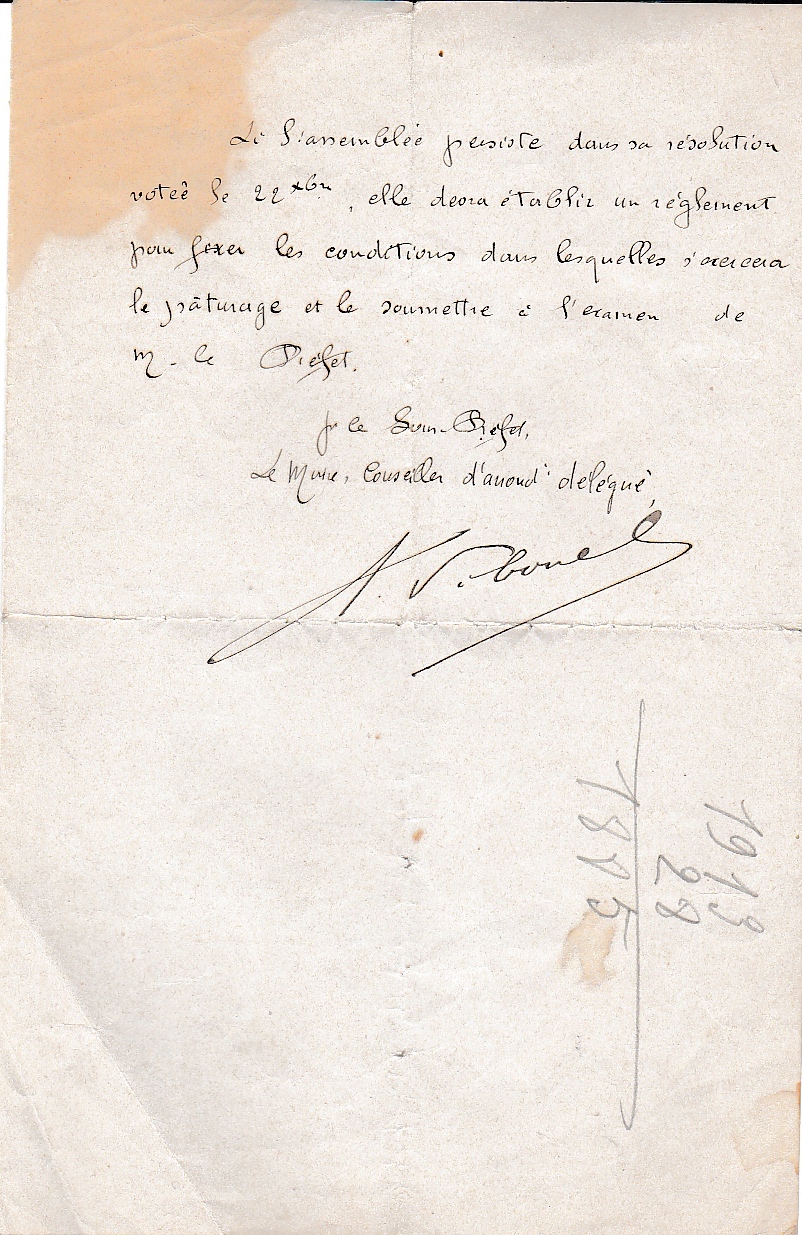 Si l'assemblée persiste dans sa résolution
votée le 22 xbre, elle devra établir un réglement
pour fixer les conditions dans lesquelles s'exercera
le pâturage et le soumettre à l'examen de
M. le Préfet.
pr le Sous-Préfet,
Le Maire, Conseiller d'arrondt délégué,
1913
28
1885